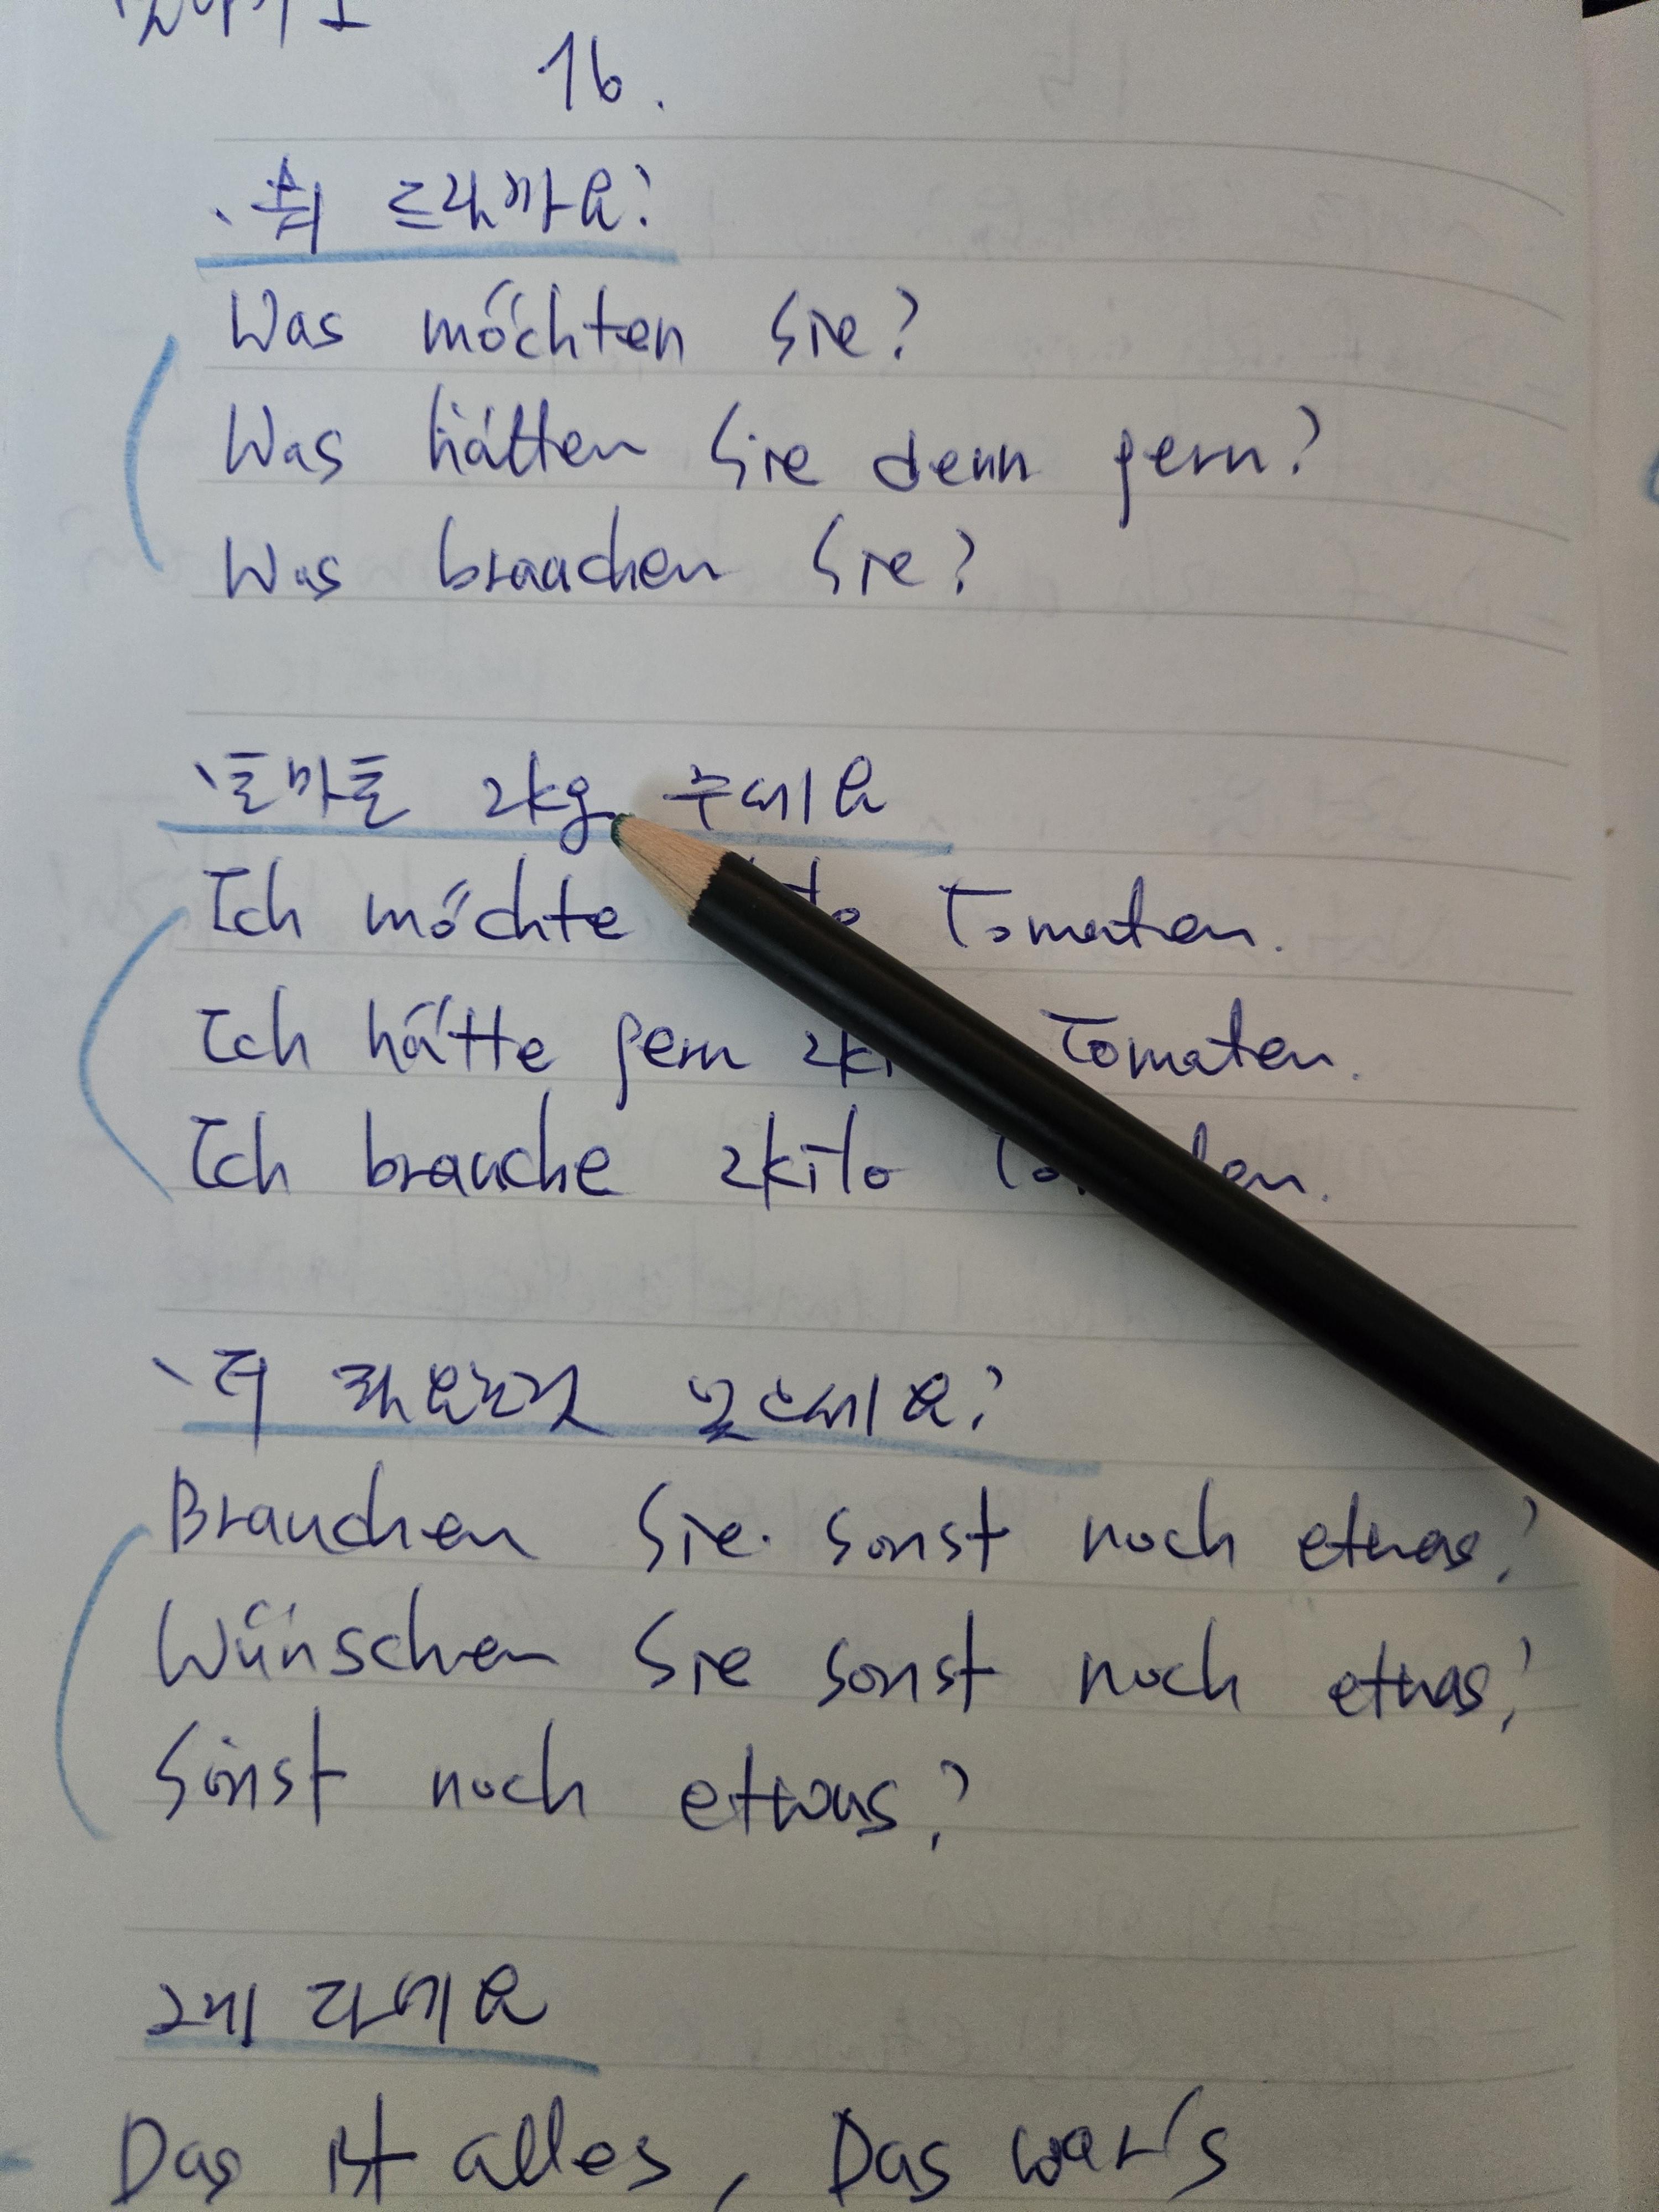 16.
· 뭐 드릴까요?
Was möchten Sie?
Was hätten Sie denn gern?
Was brauchen Sie?
· 토마토 2kg 주세요
Ich möchte Tomaten.
Ich hätte gern Tomaten.
Ich brauche 2kilo
· 더 필요한것 있으세요?
Brauchen Sie sonst noch etwas?
Wünschen Sie sonst noch etwas?
Sonst noch etwas?
그게 다에요
Das ist alles, Das war's